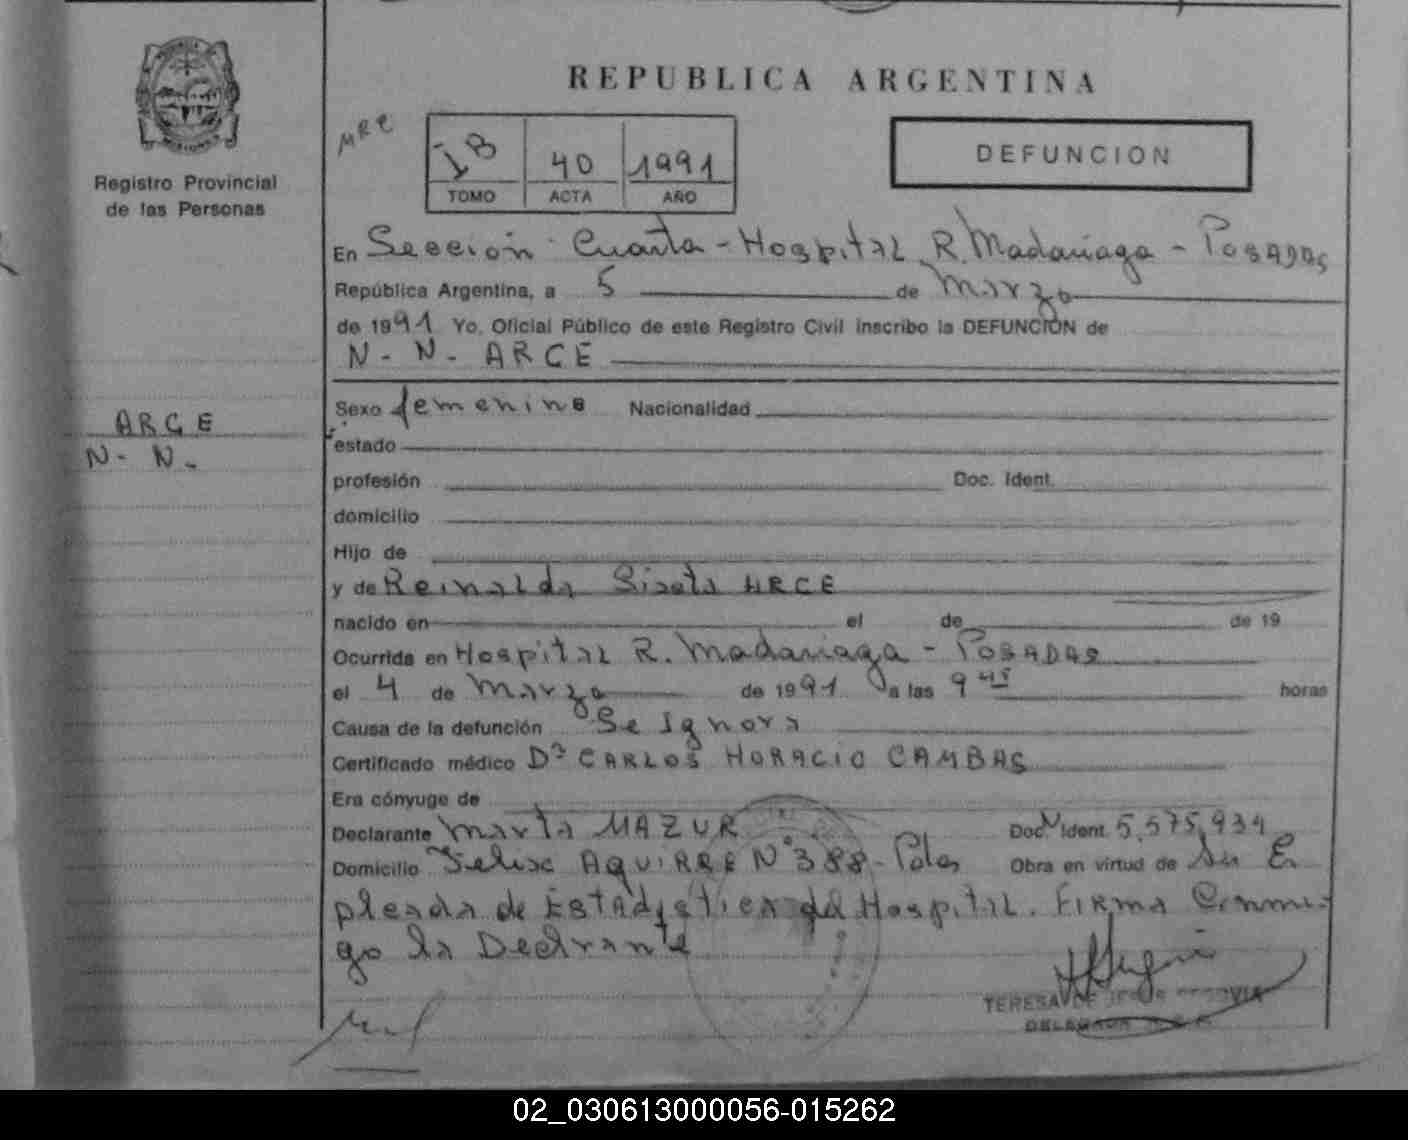 REPUBLICA ARGENTINA
Registro Provincial
de las Personas
MRC
IB 40 1991
TOMO ACTA AÑO
DEFUNCION
En Sección Cuarta - Hospital R. Madariaga - Posadas
República Argentina, a 5 de Marzo
de 1991 Yo, Oficial Público de este Registro Civil inscribo la DEFUNCION de
N. N. ARCE
ARCE
N. N.
Sexo femenino Nacionalidad
estado
profesión Doc. Ident.
domicilio
Hijo de
y de Reinalda ARCE
nacido en el de de 19
Ocurrida en Hospital R. Madariaga - Posadas
el 4 de Marzo de 1991 a las 9 45 horas
Causa de la defunción Se Ignora
Certificado médico Dr CARLOS HORACIO CAMBAS
Era cónyuge de
Declarante Marta MAZUR Doc. Ident. 5.575.934
Domicilio Felix AGUIRRE N° 388 - Pdas Obra en virtud de Su Em
pleada de Estadistica del Hospital. Firma Conmi-
go la Declrante
TERESA DE JESUS SEGOVIA
DELEGADA
02_030613000056-015262